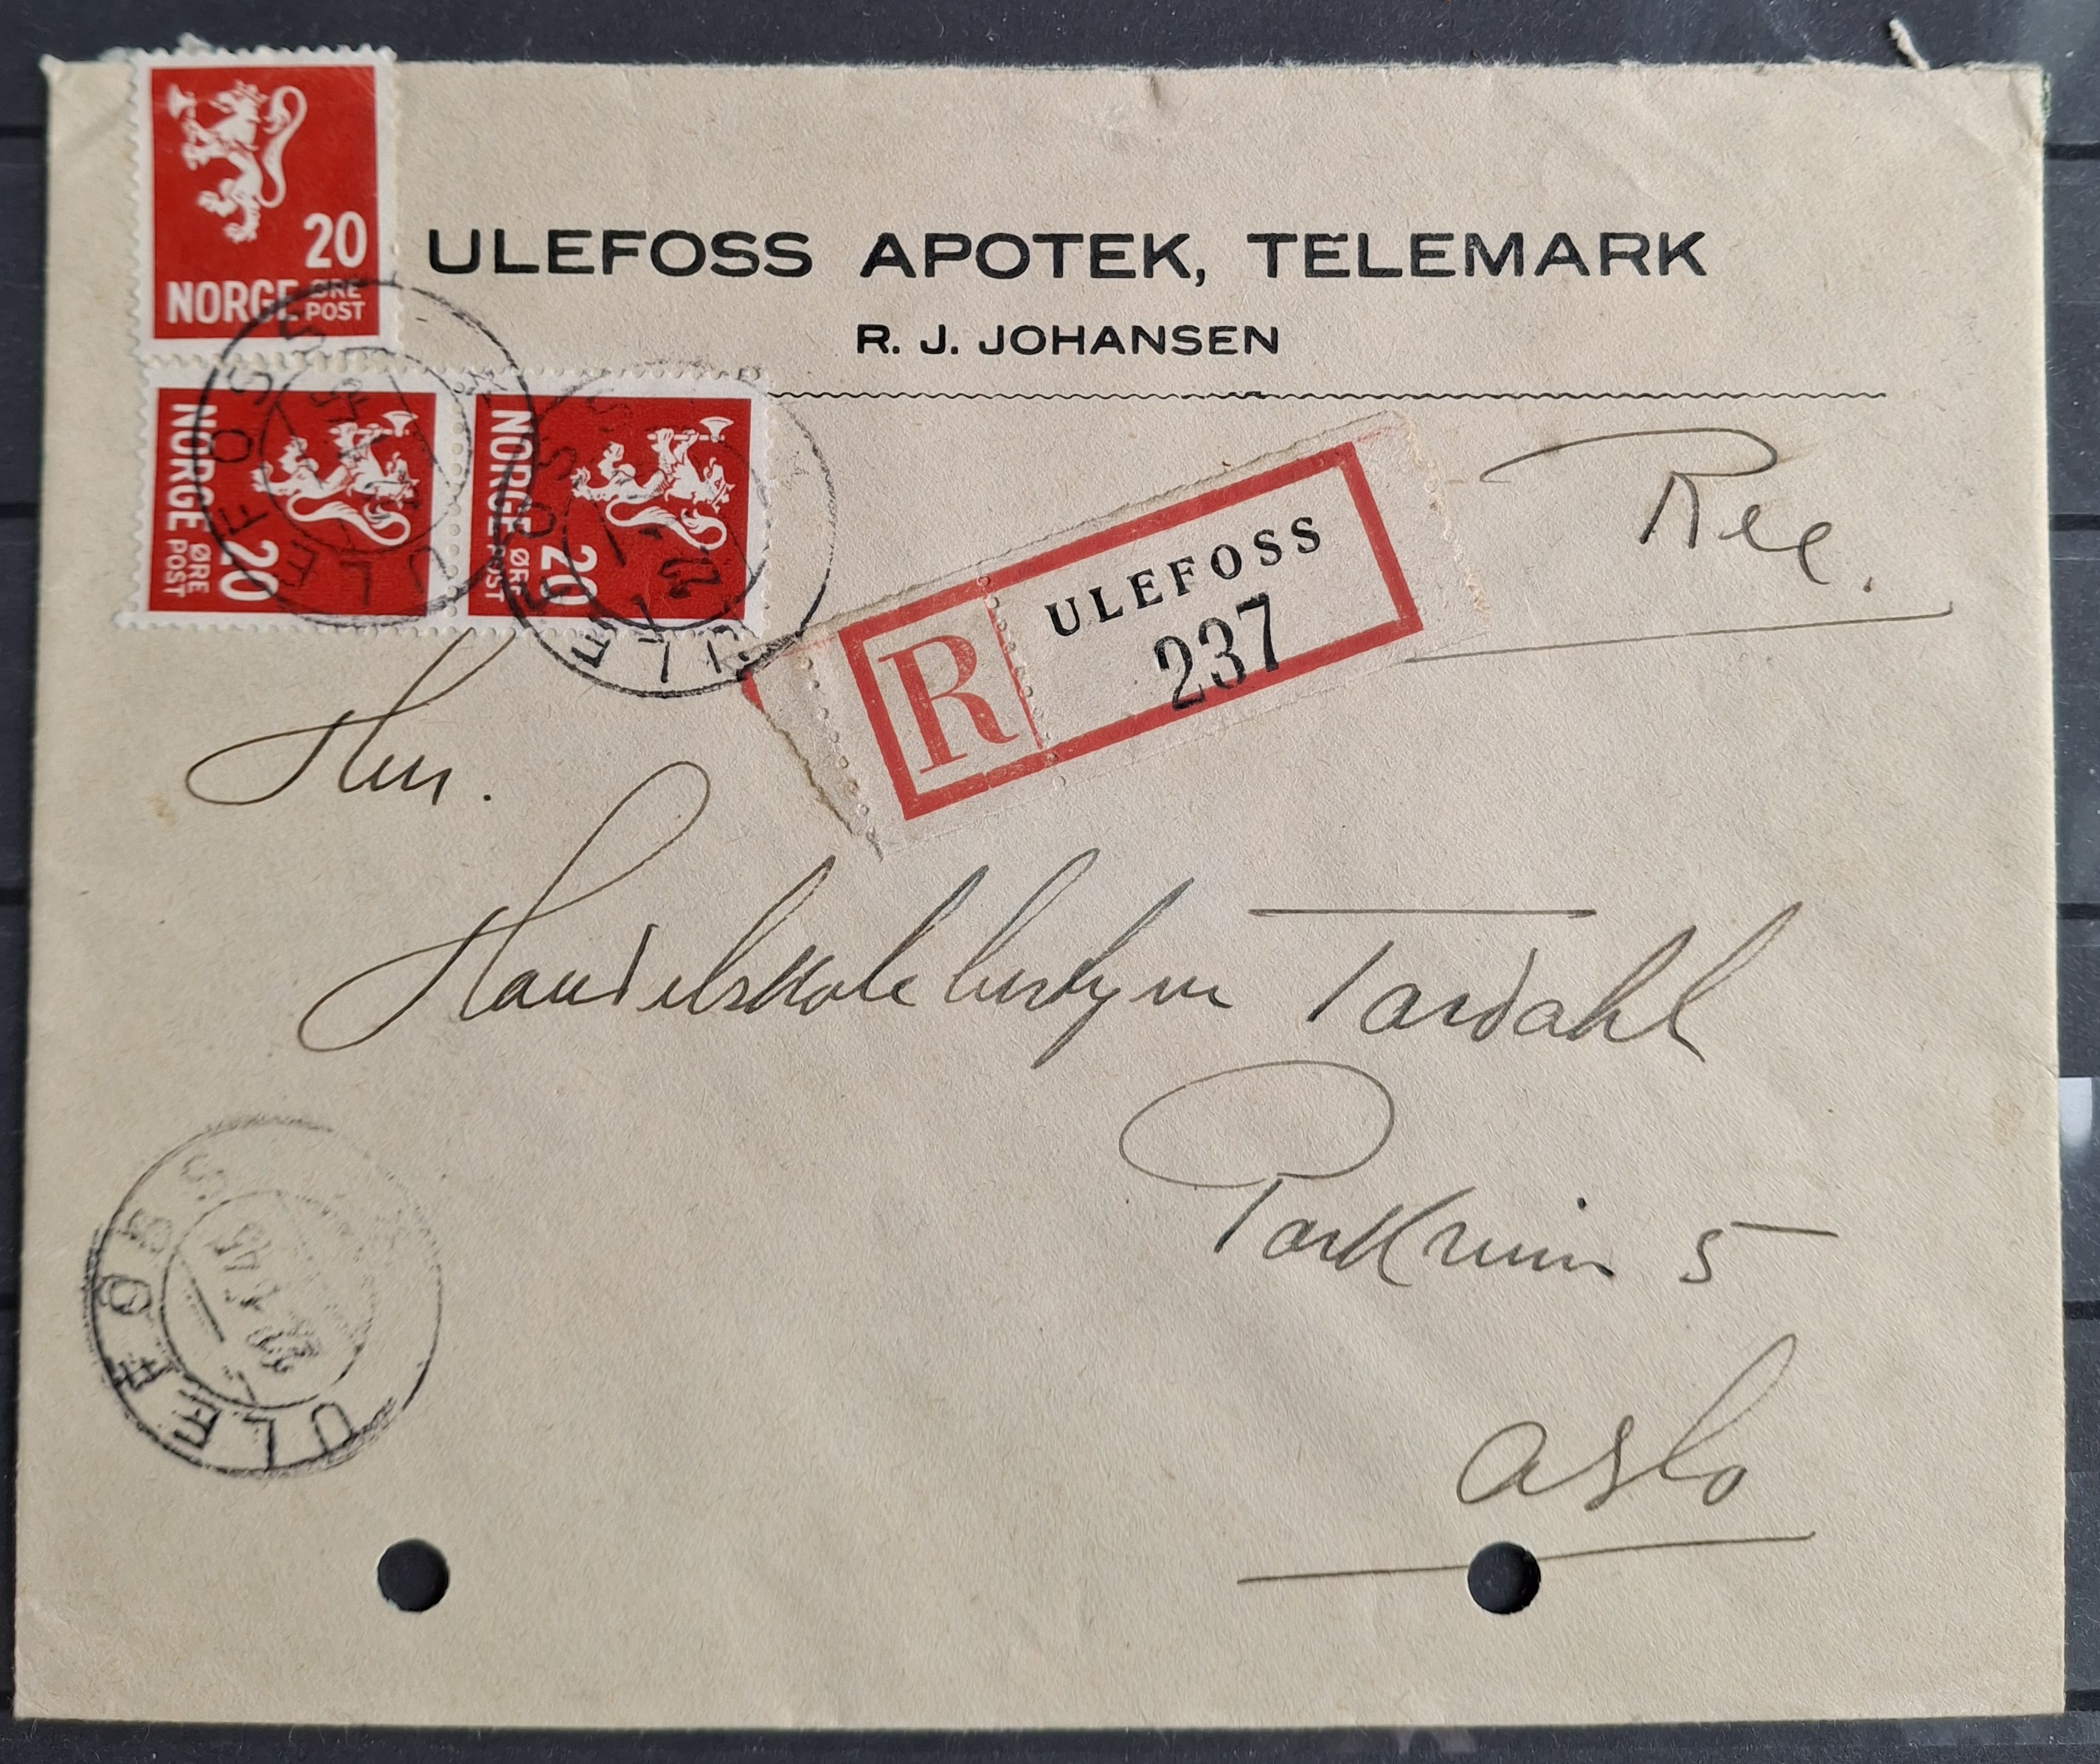 20
NORGE ØRE POST
ULEFOSS APOTEK, TELEMARK
R. J. JOHANSEN
NORGE 20 ØRE POST
NORGE 20 ØRE POST
ULEFOSS
ULEFOSS
Rec.
R ULEFOSS
237
Herr.
Handelsskolebestyrer Tardahl
Parkveien 5
Oslo
ULEFOSS